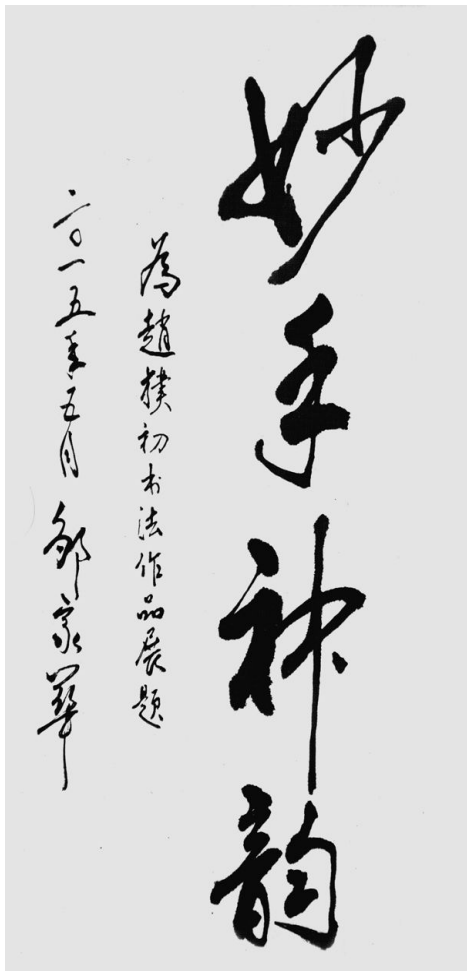 妙手神韵
為趙樸初书法作品展题
二〇一五年五月 邹家華